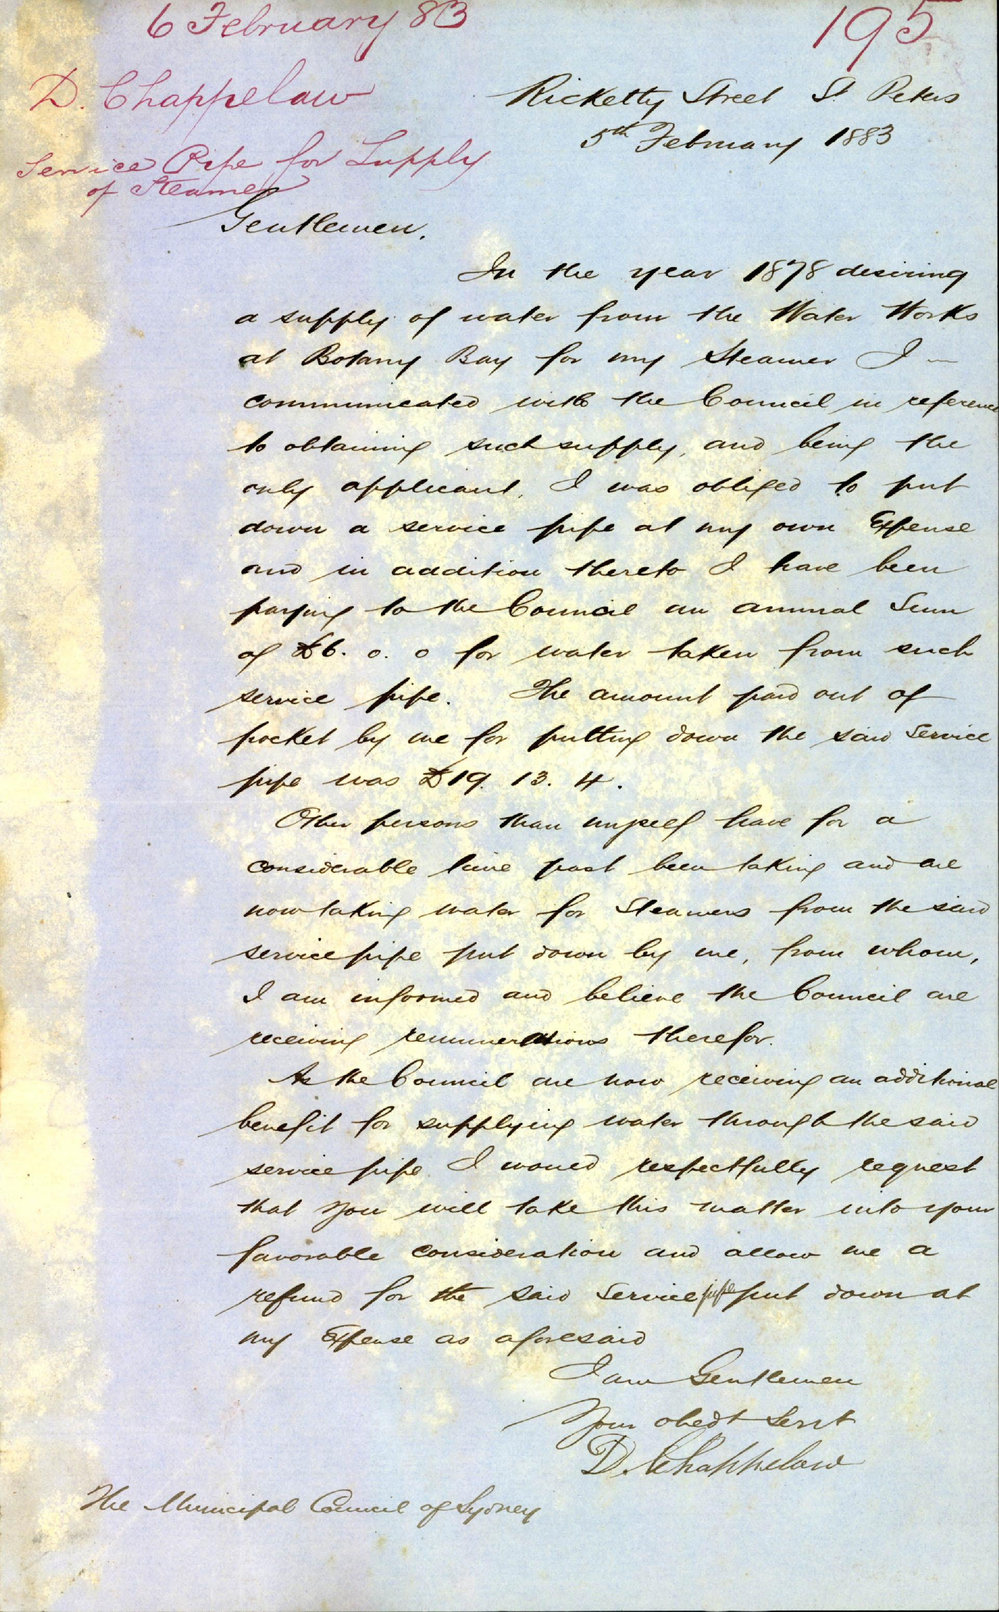 6 February 83
195
D. Chappelow
Service Pipe for Supply
of Steamer
Ricketty Street St Peters
5th February 1883
Gentlemen.
In the year 1878 desiring
a supply of water from the Water Works
at Botany Bay for my Steamer I
communicated with the Council in reference
to obtaining such supply, and being the
only applicant, I was obliged to put
down a service pipe at my own Expense
and in addition thereto I have been
paying to the Council an annual Sum
of £6. 0. 0 for water taken from such
service pipe. The amount paid out of
pocket by me for putting down the said Service
pipe was £19. 13. 4.
Other persons than myself have for a
considerable time past been taking and are
now taking water for Steamers from the said
service pipe put down by me, from whom,
I am informed and believe the Council are
receiving remunerations therefor.
As the Council are now receiving an additional
benefit for supplying water through the said
service pipe I would respectfully request
that you will take this matter into your
favorable consideration and allow me a
refund for the said Service pipe put down at
my Expense as aforesaid
I am Gentlemen
Your obedt Servt
D. Chappelow
The Municipal Council of Sydney